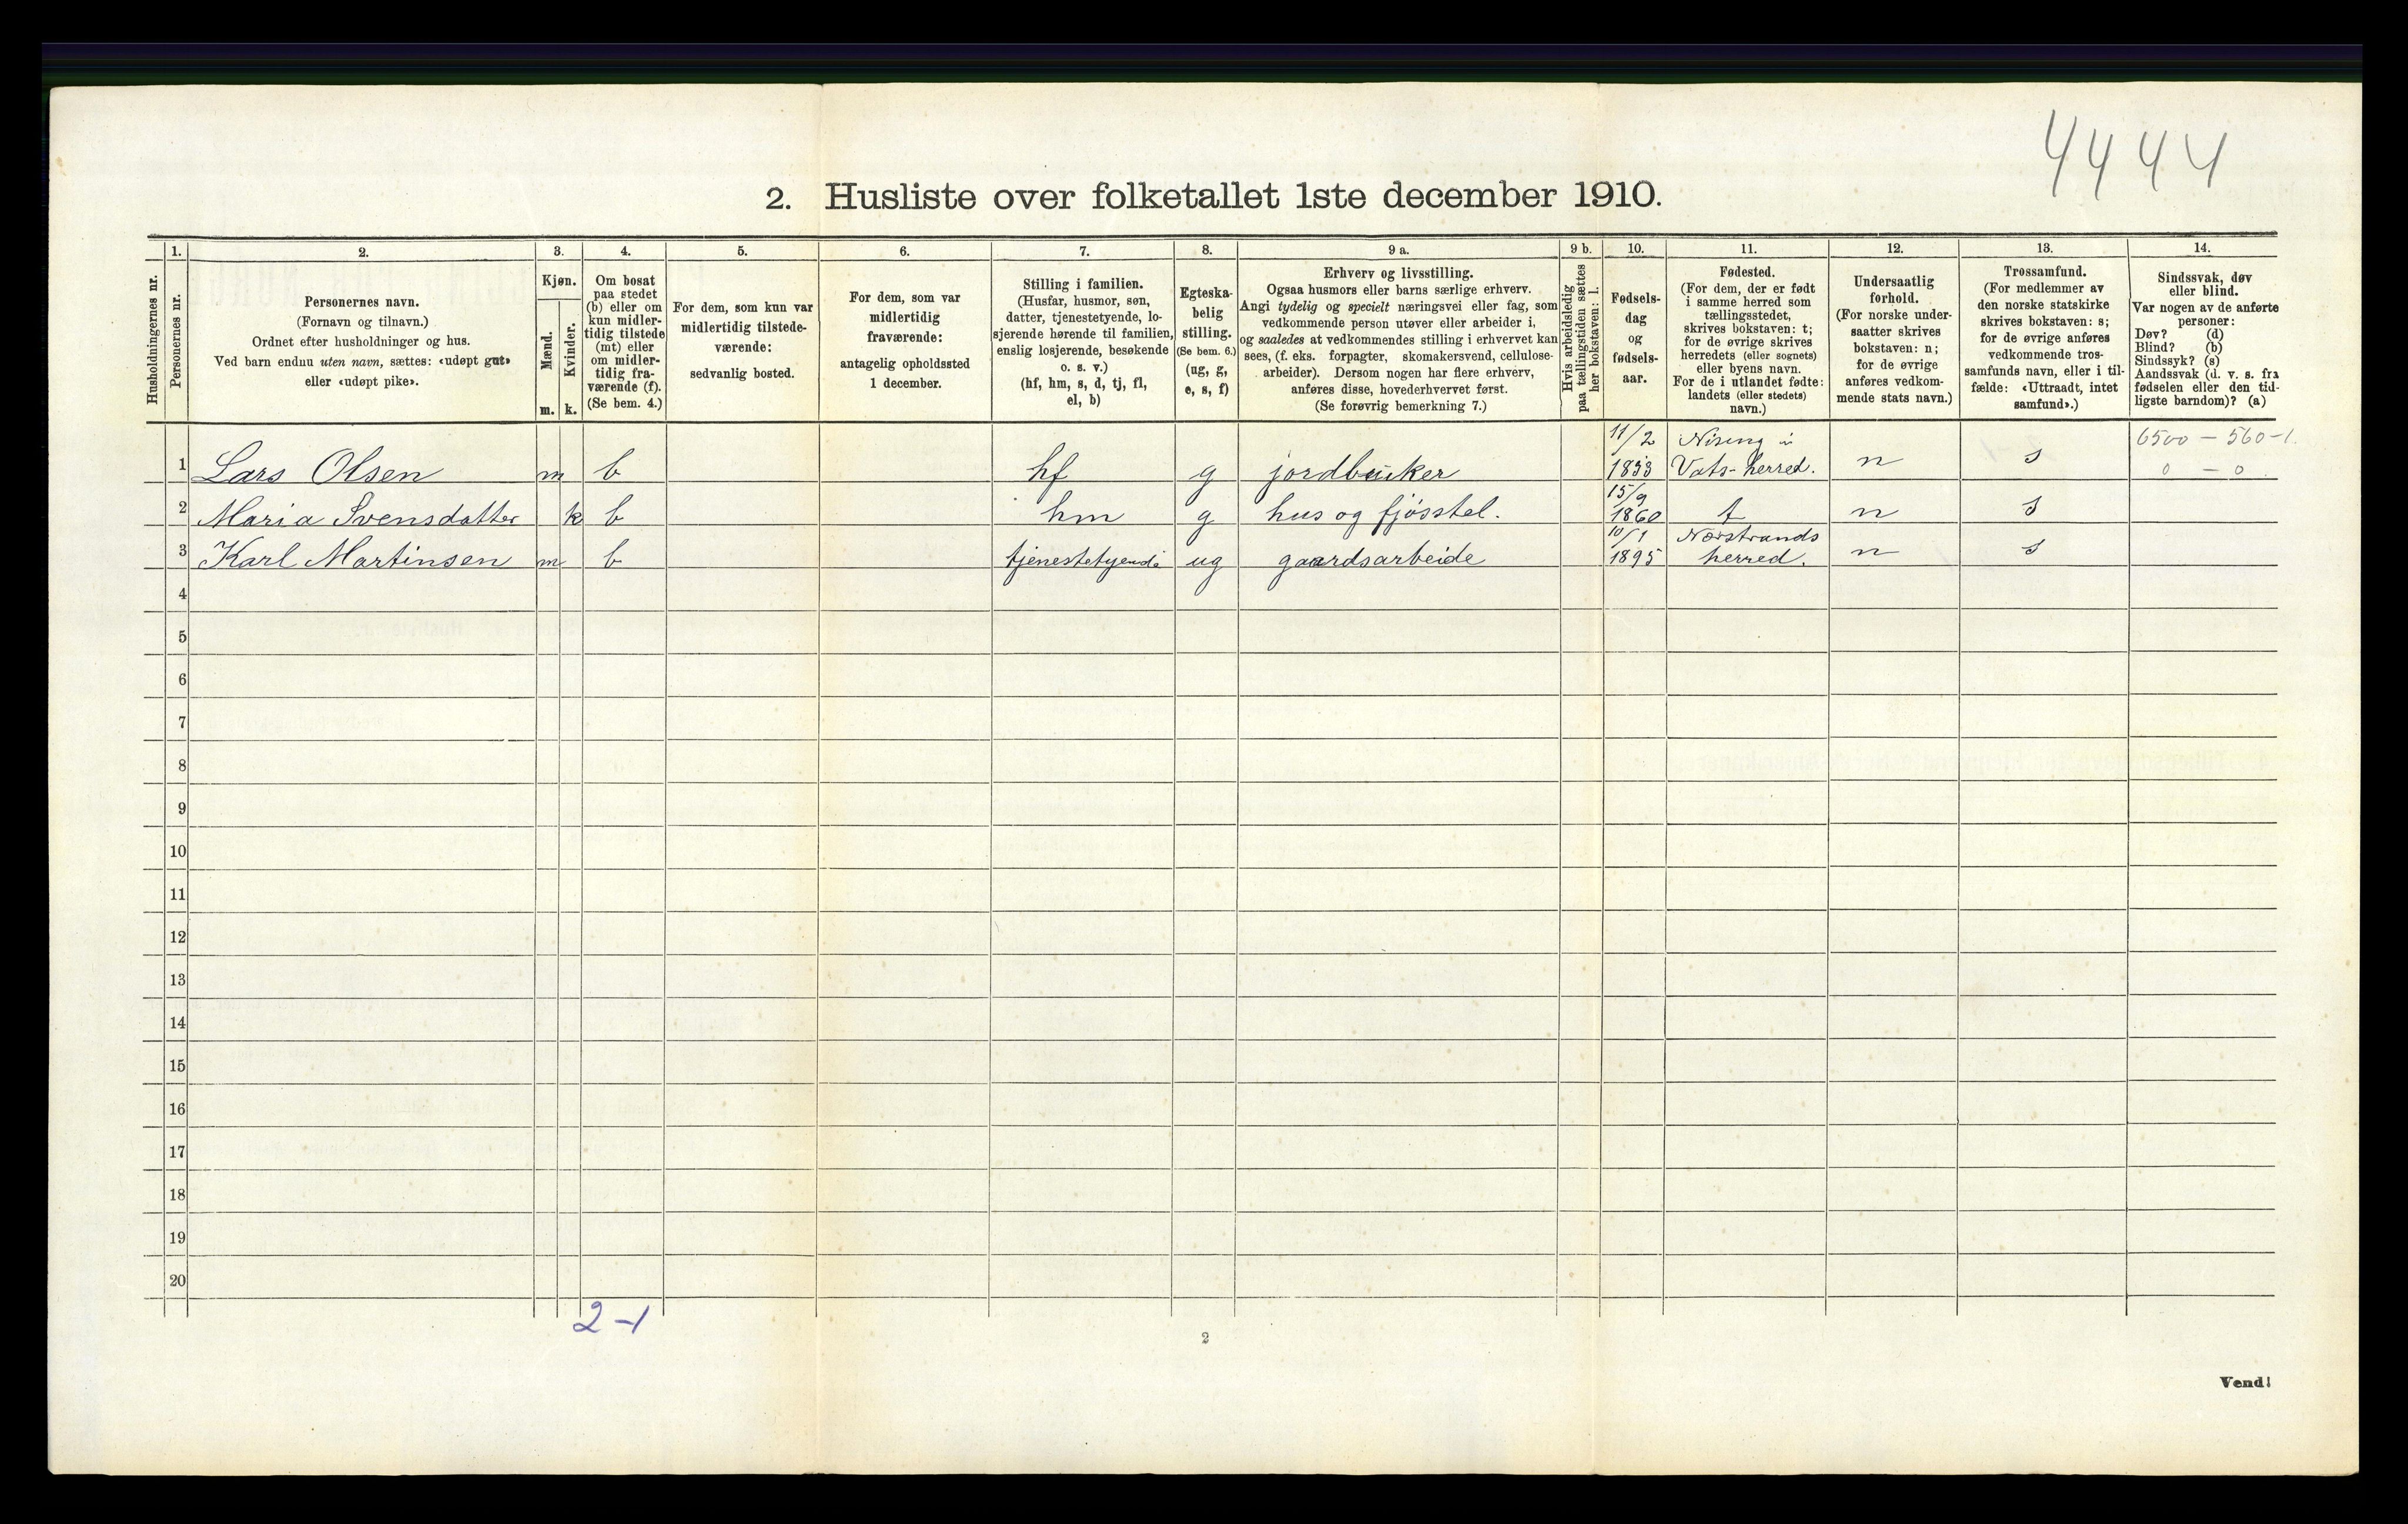 4444
2. Husliste over folketallet 1ste december 1910.
Husholdningernes nr.
1.
Personernes nr.
2.
Personernes navn.
(Fornavn og tilnavn.)
Ordnet efter husholdninger og hus.
Ved barn endnu uten navn, sættes: «udøpt gut»
eller «udøpt pike».
3.
Kjøn.
Mænd.
m.
Kvinder.
k.
4.
Om bosat
paa stedet
(b) eller om
kun midler-
tidig tilstede
(mt) eller
om midler-
tidig fra-
værende (f).
(Se bem. 4.)
5.
For dem, som kun var
midlertidig tilstede-
værende:
sedvanlig bosted.
6.
For dem, som var
midlertidig
fraværende:
antagelig opholdssted
1 december.
7.
Stilling i familien.
(Husfar, husmor, søn,
datter, tjenestetyende, lo-
sjerende hørende til familien,
enslig losjerende, besøkende
o. s. v.)
(hf, hm, s, d, tj, fl,
el, b)
8.
Egteska-
belig
stilling.
(Se bem. 6.)
(ug, g,
e, s, f)
9 a.
Erhverv og livsstilling.
Ogsaa husmors eller barns særlige erhverv.
Angi tydelig og specielt næringsvei eller fag, som
vedkommende person utøver eller arbeider i,
og saaledes at vedkommendes stilling i erhvervet kan
sees, (f. eks. forpagter, skomakersvend, cellulose-
arbeider). Dersom nogen har flere erhverv,
anføres disse, hovederhvervet først.
(Se forøvrig bemerkning 7.)
9 b.
Hvis arbeidsledig
paa tællingstiden sættes
her bokstaven: l.
10.
Fødsels-
dag
og
fødsels-
aar.
11.
Fødested.
(For dem, der er født
i samme herred som
tællingsstedet,
skrives bokstaven: t;
for de øvrige skrives
herredets (eller sognets)
eller byens navn.
For de i utlandet fødte:
landets (eller stedets)
navn.)
12.
Undersaatlig
forhold.
(For norske under-
saatter skrives
bokstaven: n;
for de øvrige
anføres vedkom-
mende stats navn.)
13.
Trossamfund.
(For medlemmer av
den norske statskirke
skrives bokstaven: s;
for de øvrige anføres
vedkommende tros-
samfunds navn, eller i til-
fælde: «Uttraadt, intet
samfund».)
14.
Sindssvak, døv
eller blind.
Var nogen av de anførte
personer:
Døv? (d)
Blind? (b)
Sindssyk? (s)
Aandssvak (d. v. s. fra
fødselen eller den tid-
ligste barndom)? (a)
11/2 i 6500 – 560–1.
1 Lars Olsen m b hf g jordbruker Vats-herred. n s 0 – 0.
15/9
2 Maria Svensdatter k b hm g hus og fjøsstel. 1860 t n s
10/1 Nærstrands
3 Karl Martinsen m b tjenestetyende ug gaardsarbeide 1895 herred. n s
4
5
6
7
8
9
10
11
12
13
14
15
16
17
18
19
20
2–1
2
Vend!